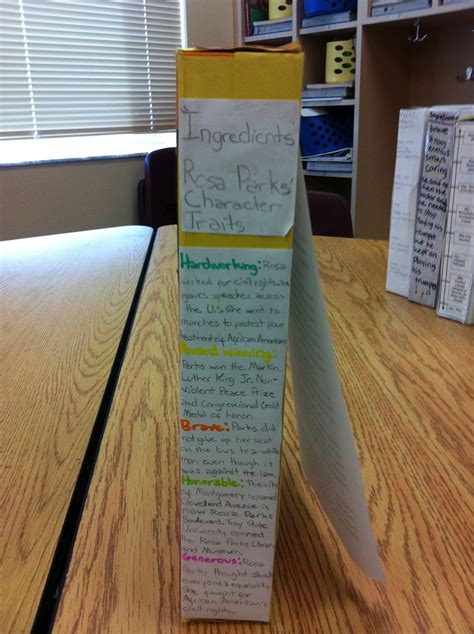 Ingredients
Rosa Parks'
Character
Traits
Hardworking: Rosa
worked for civil rights. She
gave speeches across
the U.S. She went to
marches to protest poor
treatment of African Americans
Award winning:
Parks won the Martin
Luther King Jr. Non-
violent Peace Prize
and Congressional Gold
Medal of honor.
Brave: Parks did
not give up her seat
on the bus to a white
man even though it
was against the law.
Honorable: The city
of Montgomery renamed
Cleveland Avenue is
now Rosa Parks
Boulevard. Troy State
University opened
the Rosa Parks Library
and Museum.
Generous: Rosa
Parks thought about
everyone's equality
She fought for
African American's
civil rights.
smart
caring